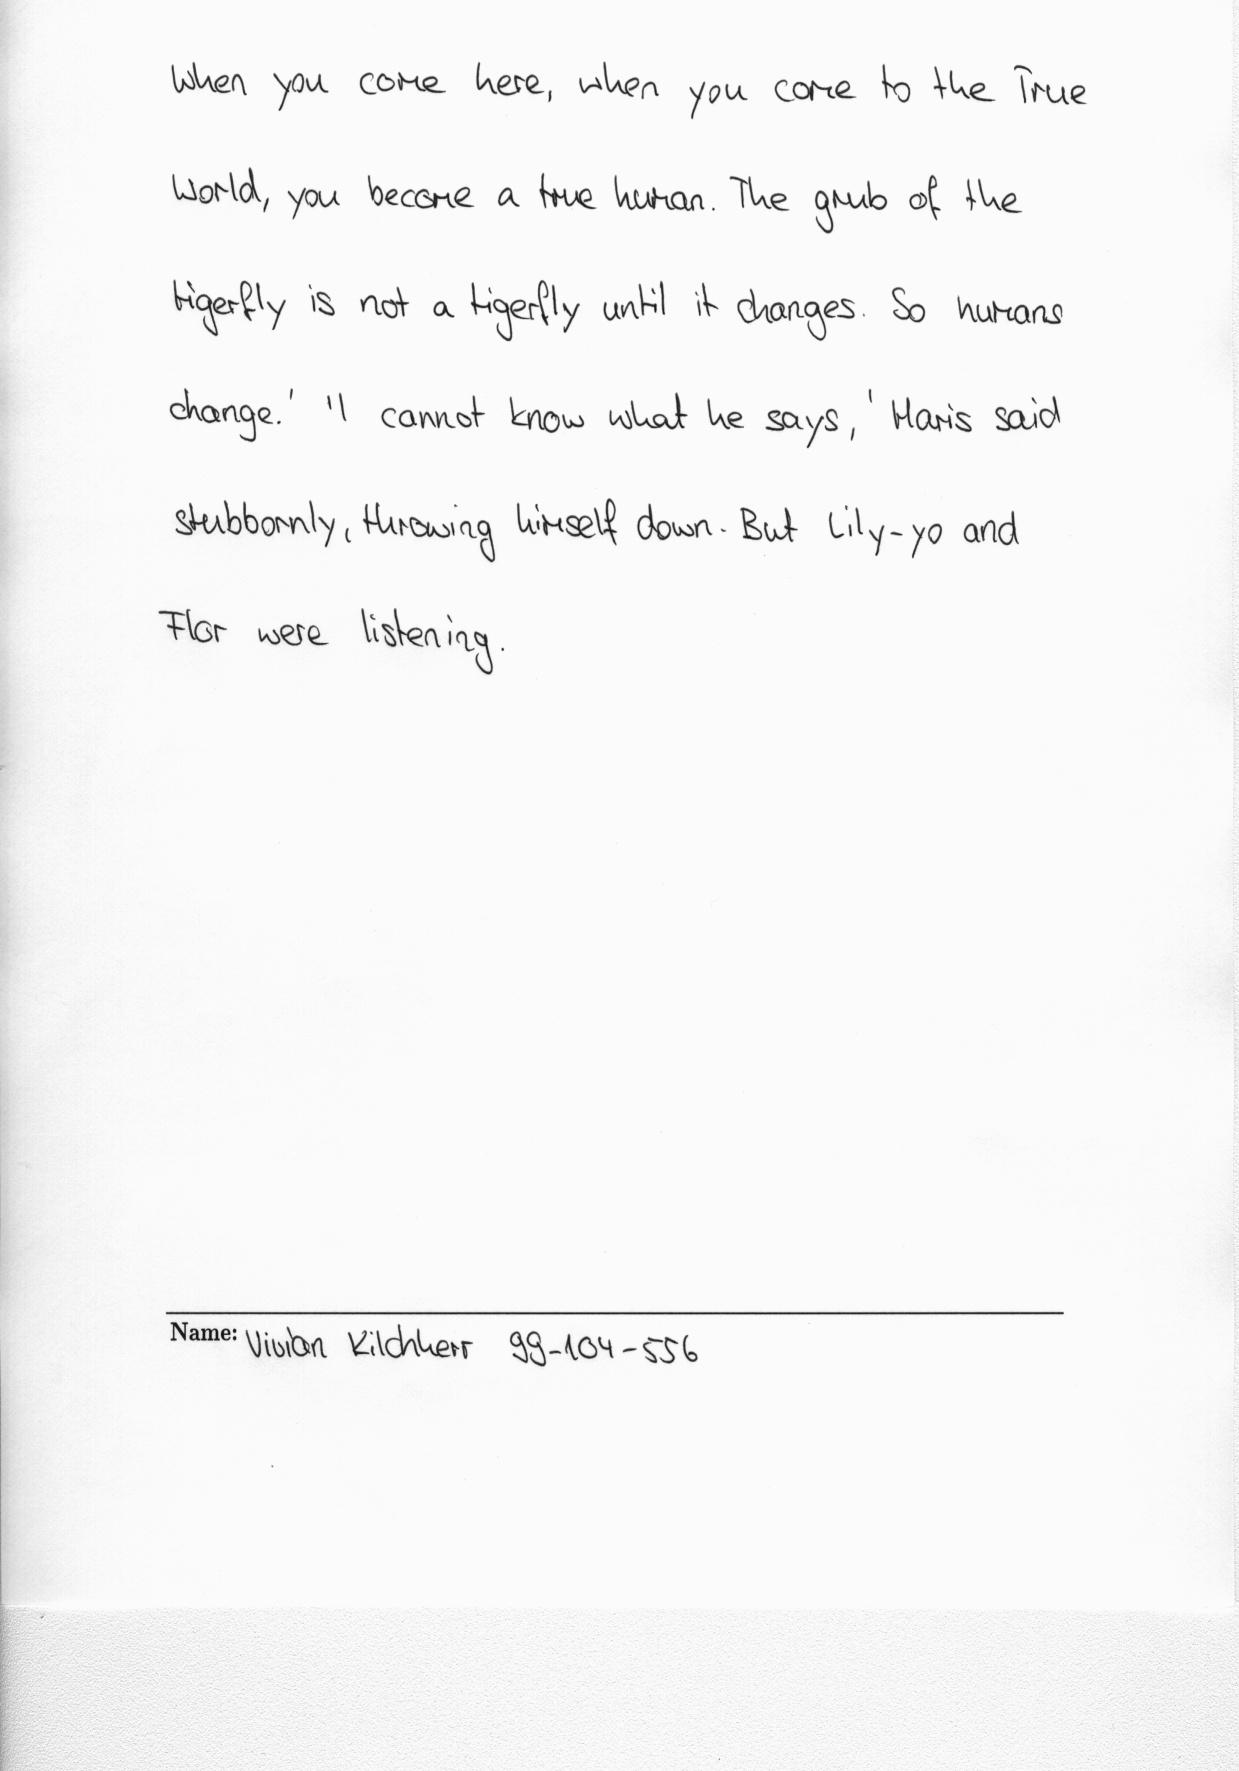 When you come here, when you come to the True
World, you become a true human. The grub of the
tigerfly is not a tigerfly until it changes. So humans
change.' 'I cannot know what he says,' Haris said
stubbornly, throwing himself down. But Lily-yo and
Flor were listening.
Name: Vivian Kilchherr 99-104-556